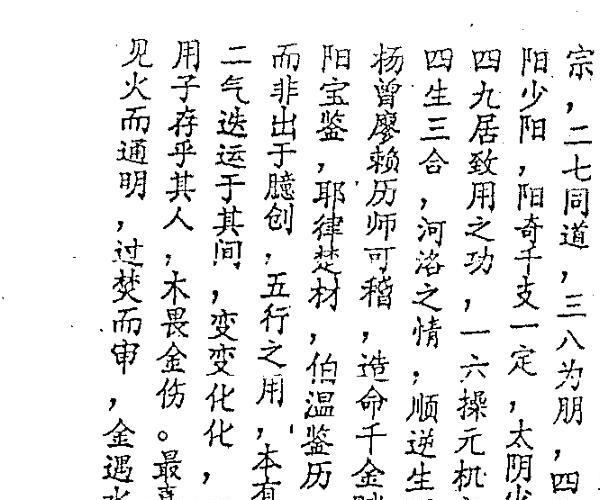 宗，二七同道，三八为朋，四
阳少阳，阳奇千支一定，太阴少
四九居致用之功，一六操元机
四生三合，河洛之情，顺逆生
杨曾廖赖历师可稽，造命千金
阳宝鉴，耶律楚材，伯温鉴历
而非出于臆创，五行之用，本有
二气迭运于其间，变变化化，
用子存乎其人，木畏金伤。最喜
见火而通明，过焚而审，金遇水